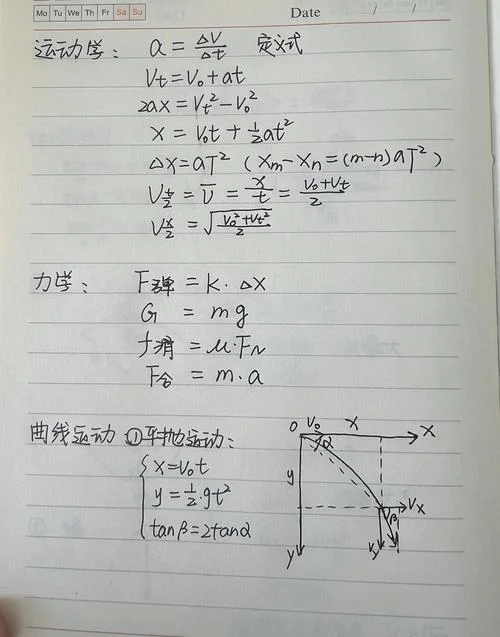 Mo Tu We Th Fr Sa Su
Date / /
运动学: a = ΔV/Δt 定义式
Vt = V₀ + at
2ax = Vt² - V₀²
x = V₀t + ½at²
Δx = aT² (Xm - Xn = (m-n)aT²)
V_{t/2} = V̄ = x/t = (V₀+Vt)/2
V_{x/2} = √((V₀²+Vt²)/2)
力学: F弹 = k·Δx
G = mg
f滑 = μ·FN
F合 = m·a
曲线运动 ①平抛运动:
x = V₀t
y = ½·gt²
tanβ = 2tanα
0 V₀ X X
α
y
β Vx
y Vy